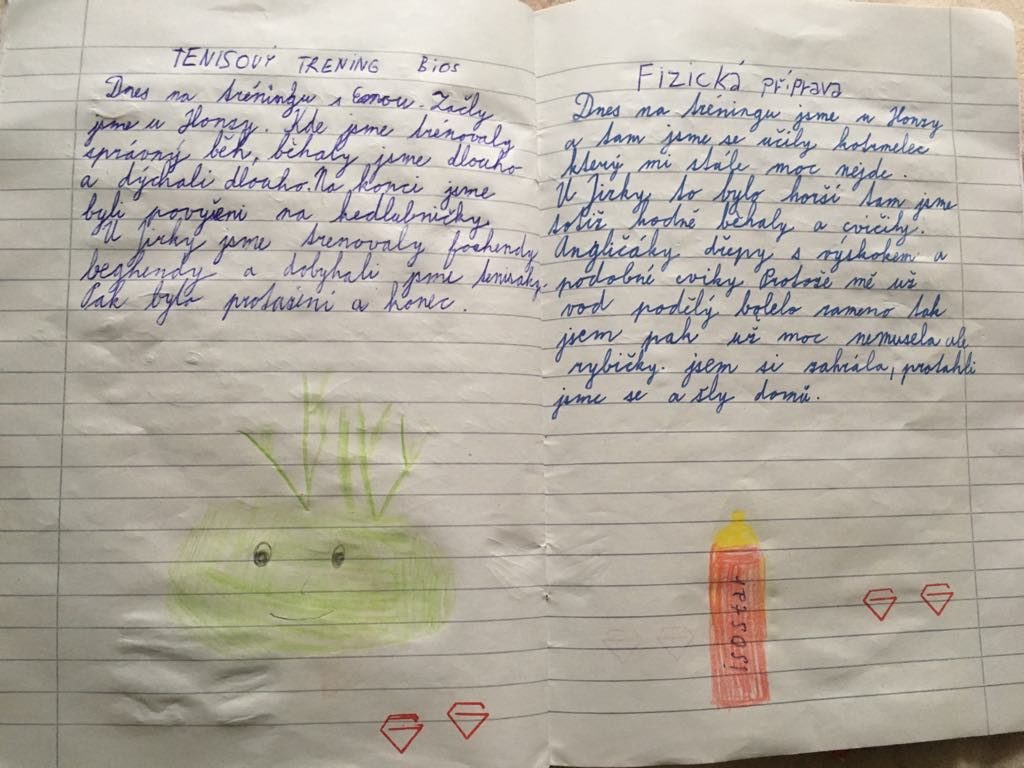 TENISOVÝ TRENING BIOS
Dnes na tréningu s Emou. Začly
jsme u Honzy. Kde jsme trénovaly
správný běh, běhaly jsme dlouho
a dýchali dlouho. Na konci jsme
byli povýšeni na kedlubničky.
U Jirky jsme trenovaly forhendy
beghendy a dobyhali jsme tenisáky.
Pak bylo protažení a konec.
Fizická příprava
Dnes na tréningu jsme u Honzy
a tam jsme se učily kotrmelec
který mi stále moc nejde.
U Jirky to bylo horší tam jsme
totiž hodně běhaly a cvičily.
Angličáky dřepy s výskokem a
podobné cviky Protože mě už
vod podělý bolelo rameno tak
jsem pak už moc nemusela ale
rybičky. jsem si zahrála, protahli
jsme se a šly domů.